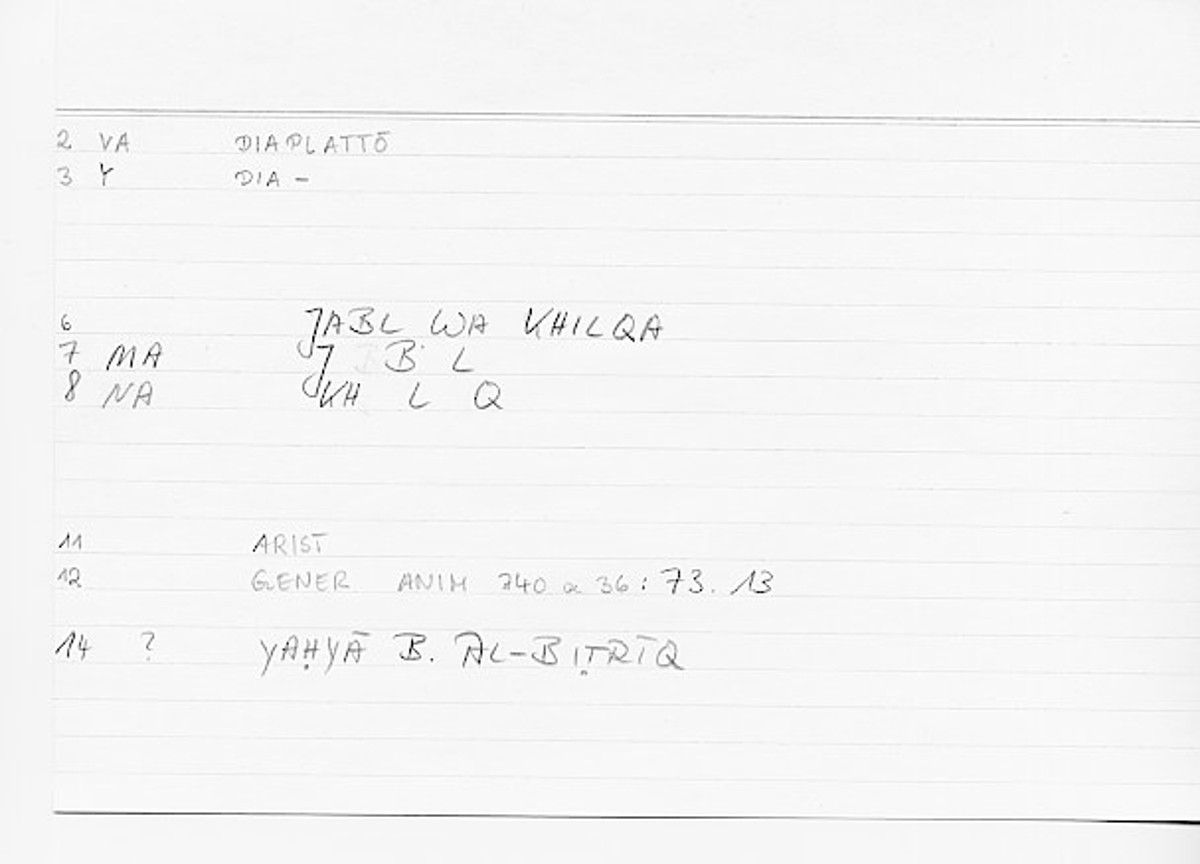 2 VA DIAPLATTŌ
3 Y DIA -
6 JABL WA KHILQA
7 MA J B L
8 NA KH L Q
11 ARIST
12 GENER ANIM 740 a 36: 73.13
14 ? YAḤYĀ B. AL-BIṬRĪQ